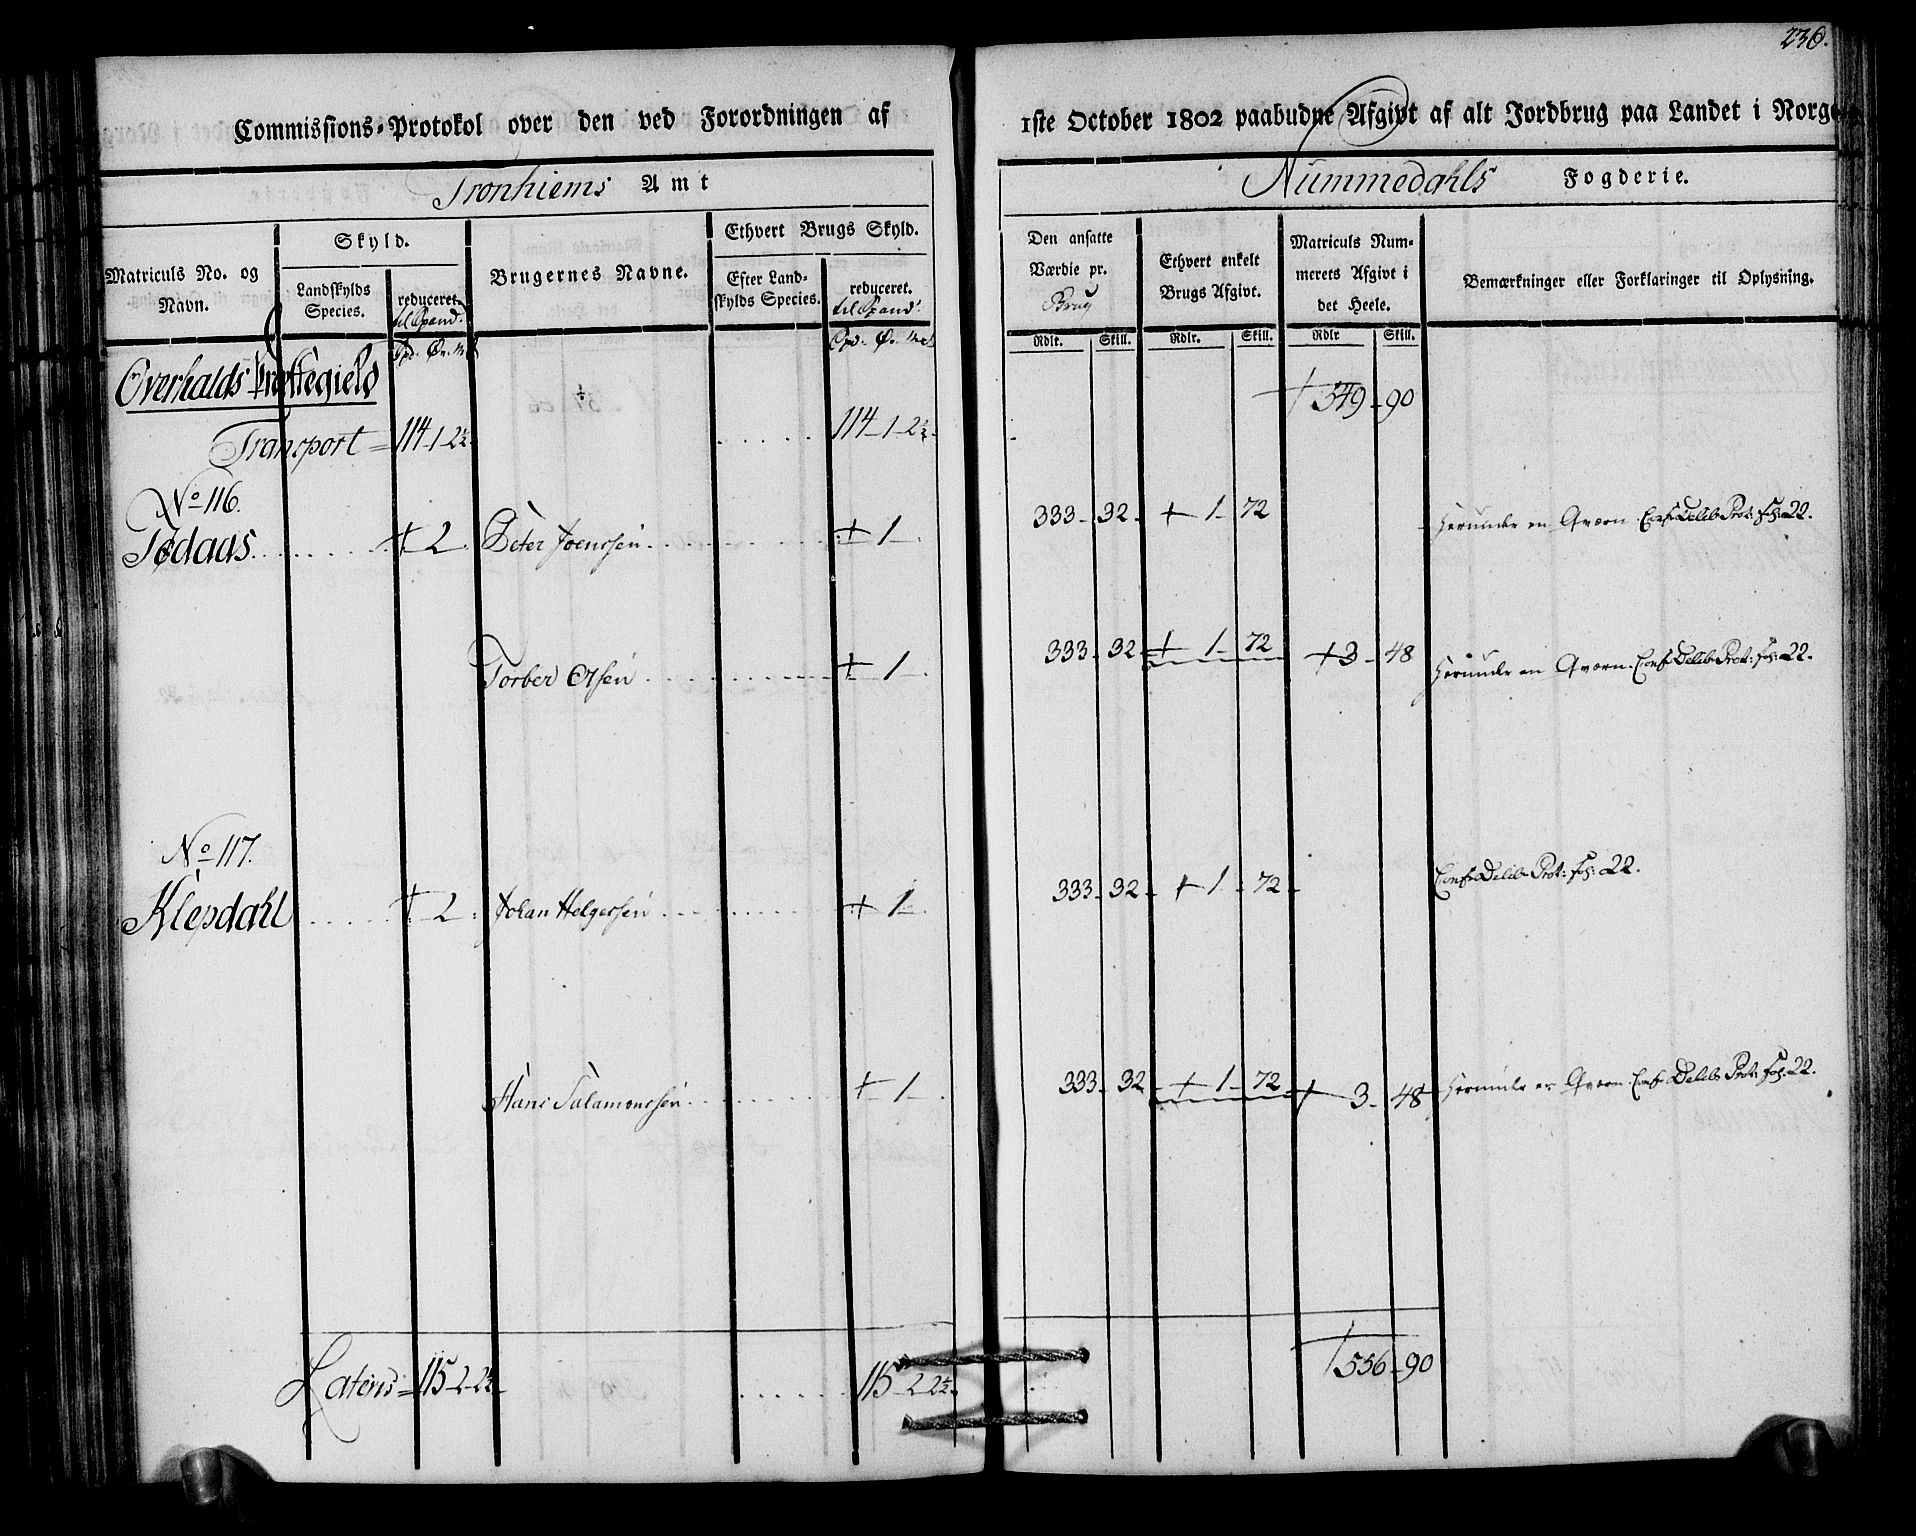 236.
Commissions-Protokol over den ved Forordningen af 1ste October 1802 paabudne Afgivt af alt Jordbrug paa Landet i Norge
Tronhiems Amt
Nummedahls Fogderie.
Matriculs No. og Navn.
Skyld.
Landskylds Species.
reduceret til Spand.
Brugernes Navne.
Ethvert Brugs Skyld.
Efter Landskylds Species.
reduceret. til Spand.
Den ansatte Værdie pr. Brug
Ethvert enkelt Brugs Afgivt.
Matriculs Nummerets Afgivt i det Heele.
Bemærkninger eller Forklaringer til Oplysning.
Rdlr. Skill. Rdlr. Skill. Rdlr Skill.
Overhalds Præstegield
Transport = 114-1-2½ 114-1-2½ 549-90
No 116.
Tødaas. + 2 Peter Joenssen + 1 333-32 + 1-72 Herunder en Qværn. Conf. Delib. Prot: fol: 22.
Torber Olsen + 1 333-32 + 1-72 + 3-48 Herunder en Qværn. Conf. Delib. Prot: fol: 22.
No 117.
Klepdahl + 2 Johan Helgessen + 1 333-32 + 1-72 Conf. Delib. Prot: fol: 22.
Hans Salamonssen + 1 333-32 + 1-72 + 3-48 Herunder en Qværn. Conf. Delib. Prot: fol: 22.
Lateris = 115-2-2½ 115-2-2½ 556-90